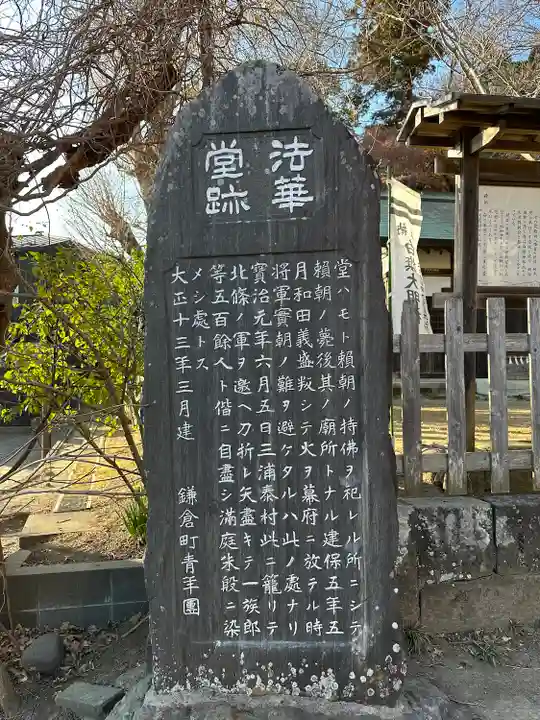 法華
堂跡
堂ハモト頼朝ノ持佛ヲ祀レル所ニシテ
頼朝ノ薨後其ノ廟所トナル建保五年五
月和田義盛叛シテ火ヲ幕府ニ放テル時
將軍實朝ノ難ヲ避ケタルハ此ノ處ナリ
寳治元年六月五日三浦泰村此ニ籠リテ
北條ノ軍ヲ邀ヘ刀折レ矢盡キテ一族郎
等五百餘人ト偕ニ自盡シ満庭朱殷ニ染
メシ處トス
大正十三年三月建 鎌倉町青年團
白旗大明